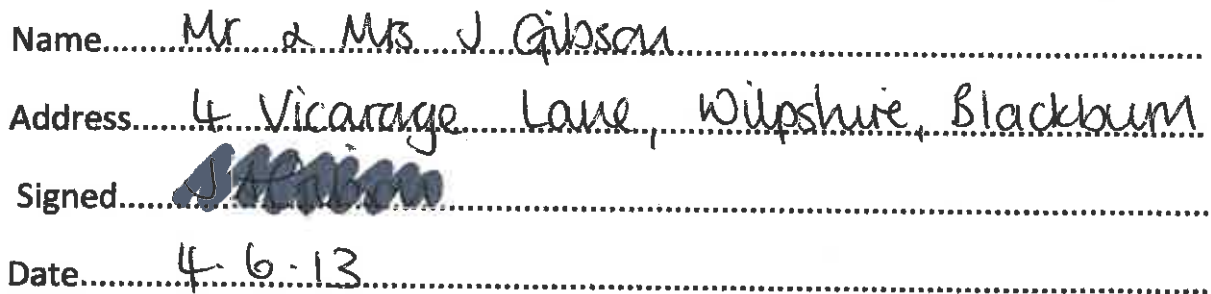 Name...... Mr & Mrs J Gibson
Address...... 4 Vicarage Lane, Wilpshire, Blackburn
Signed......
Date...... 4.6.13